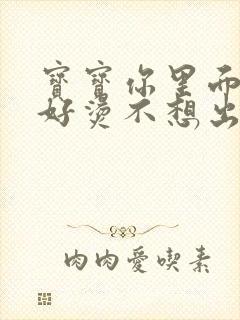 寶寶你里面
好燙不想出
肉肉愛喫素